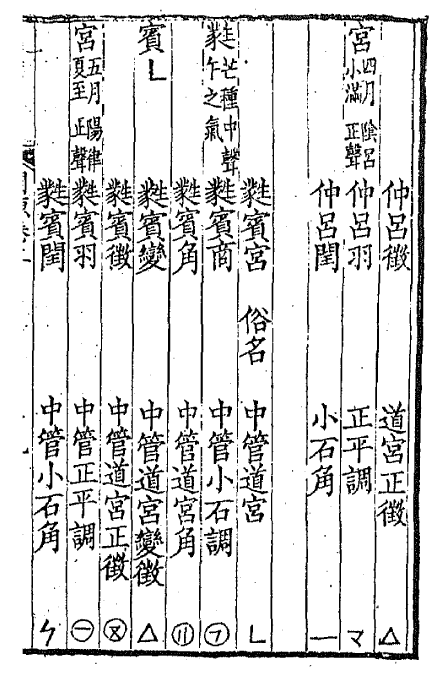 仲呂徵 道宮正徵 △
宮 四月 陰呂 小滿 正聲 仲呂羽 正平調 マ
仲呂閏 小石角 一
蕤賓宮 俗名 中管道宮 ㄴ
蕤 芒種中聲 午之氣 蕤賓商 中管小石調 ㋫
蕤賓角 中管道宮角
賓 ㄴ 蕤賓變 中管道宮變徵 △
蕤賓徵 中管道宮正徵
宮 五月 陽律 夏至 正聲 蕤賓羽 中管正平調 ㊀
蕤賓閏 中管小石角 ㄣ